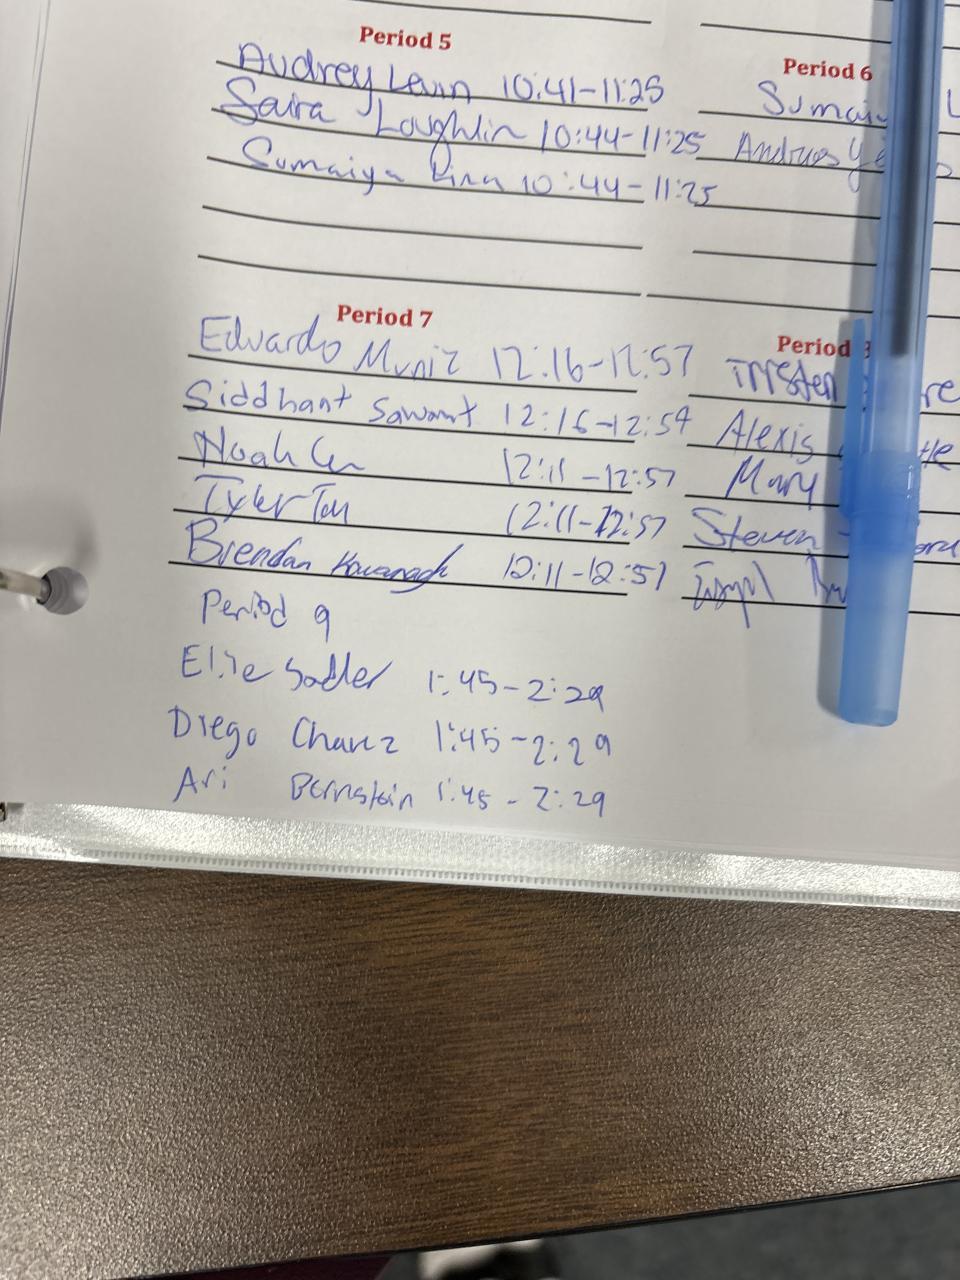 Period 5
Audrey Levin 10:41-11:25
Saira Loughlin 10:44-11:25
Sumaiya 10:44-11:25
Period 6
Sumaiy
Andres
Period 7
Eduardo Muniz 12:16-12:57
Siddhant Sawant 12:16-12:54
Noah 12:11-12:57
Tyler Tan 12:11-12:57
Brendan Kavanagh 12:11-12:57
Period
Alexis
Mary
Steven
Period 9
Ellie Sadler 1:45-2:29
Diego Chavez 1:45-2:29
Ari Bernstein 1:45-2:29